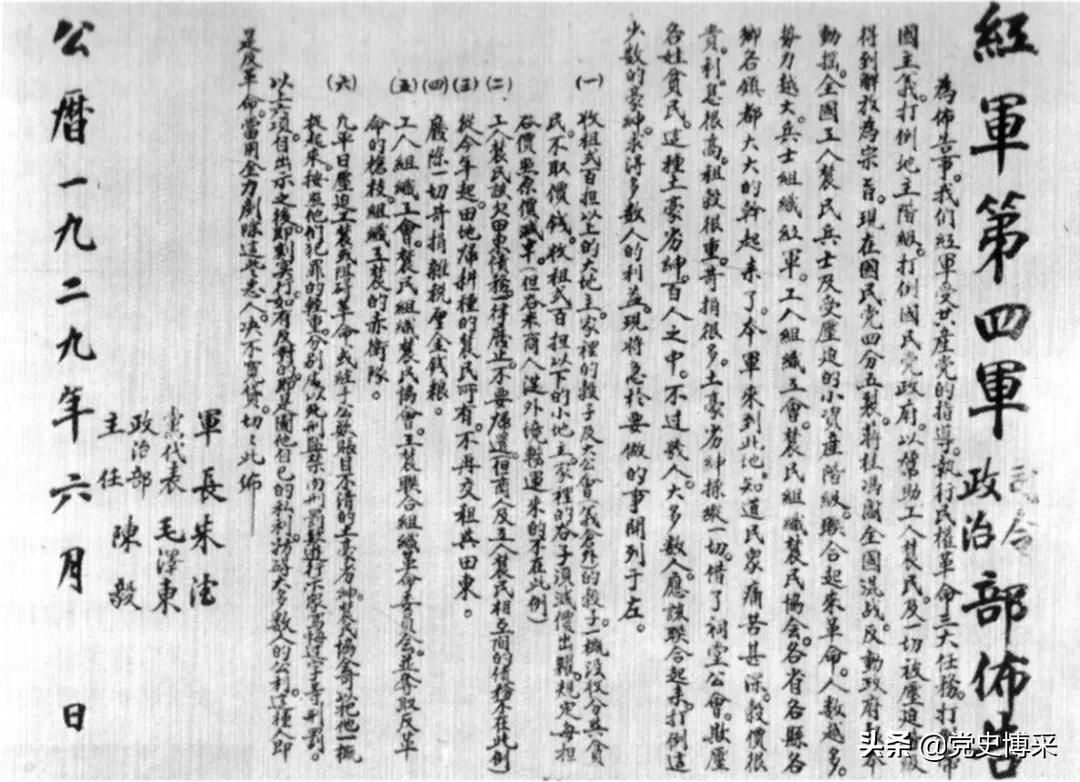 紅軍第四軍司令部政治部佈告
為佈告事。我們紅軍受共產党的指導。執行民權革命三大任務。打倒帝
國主義。打倒地主階級。打倒國民党政府。以幫助工人農民及一切被壓迫階級
得到解放為宗旨。現在國民党四分五裂。蔣桂馮閻全國混战。反動政府
動摇。全國工人農民兵士及受壓迫的小資産階級。聯合起來革命。人数越多。
勢力越大。兵士組織紅軍。工人組織工會。農民組織農民協会。各省各縣各
鄉各鎮都大大的幹起来了。本軍來到此地。知道民家痛苦甚深。穀價很
貴。利息很高。租穀很重。苛捐很多。土豪劣紳操縱一切。借了祠堂公會欺壓
各姓貧民。這種土豪劣紳。百人之中。不过幾人。大多数人應該联合起来。打倒這
少数的豪紳。求得多数人的利益。現將急於要做的事開列于左。
(一) 收租弍百担以上的大地主。家裡的穀子及大公會(義倉外)的穀子。一概没收分與貧
民。不取價钱。收租弍百担以下的小地主家裡的谷子須减價出糶。規定每担
谷價照原價减半。(但谷米商人從外境轉運来的不在此例)
(二) 工人農民該欠田東債務。一律廢止。不要歸還(但商人及工人農民相互間的債務不在此例)
(三) 從今年起。田地歸耕種的農民所有。不再交租與田東。
(四) 廢除一切苛捐雜税厘金钱粮。
(五) 工人組織工會。農民組織農民協會。工農联合組織革命委員会。並奪取反革
命的槍枝。組織工農的赤衛隊。
(六) 凡平日壓迫工農或阻碍革命或經手公款賬目不清的土豪劣紳。農民協會可把他一概
捉起来。按照他们犯罪的輕重。分别處以死刑監禁肉刑罰款遊行示家寫悔过字等刑罰。
以上六項。自出示之後。即刻实行。如有反對的。即是圖他自己的私利。妨碍大多数人的公利。這種人即
是反革命。當用全力剷除這些惡人。决不寬貸。切切此佈
軍長朱德
党代表毛澤東
政治部主任陳毅
公曆一九二九年六月 日
头条 @党史博采